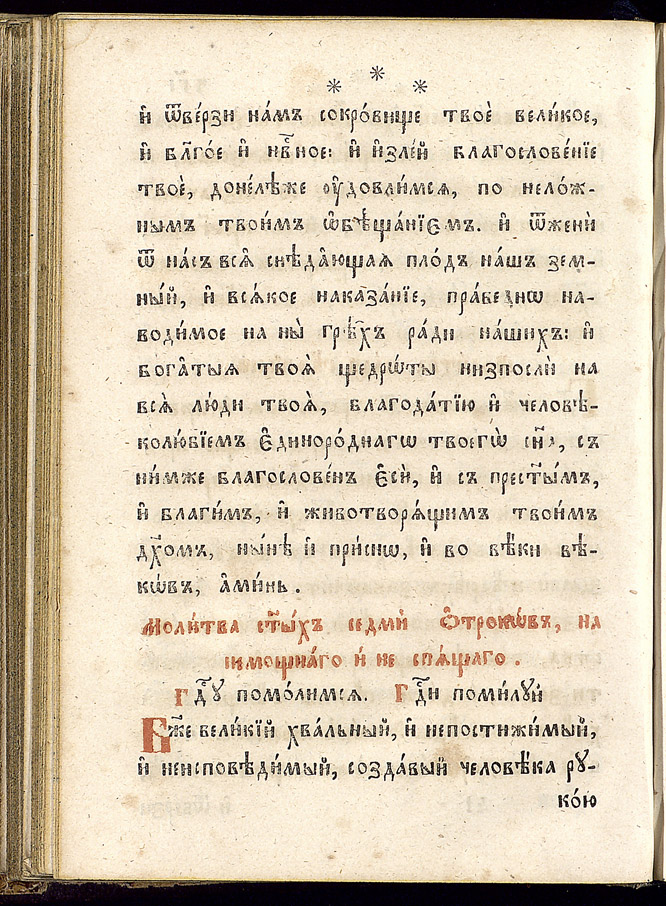 и҆ ѿве́рзи на́мъ сокро́вище твоѐ вели́кое,
и҆ бл҃го́е и҆ нбⷭ҇ное: и҆ и҆зле́й благослове́нїе
твоѐ, доне́лѣже ᲂу҆довли́мсѧ, по нело́ж-
нымъ твои́мъ ѡ҆бѣща́нїємъ. и҆ ѿженѝ
ѿ на́съ всѧ̑ снѣда́ющаѧ пло́дъ на́шъ зем-
ны́й, и҆ всѧ́кое наказа́нїе, пра́веднѡ на-
води́мое на ны̀ грѣ̑хъ ра́ди на́шихъ: и҆
бога̑тыѧ твоѧ̑ щедрѡ́ты низпослѝ на
всѧ̑ лю́ди твоѧ̑, благода́тїю и҆ человѣ-
колю́бїемъ є҆диноро́днагѡ твоегѡ̀ сн҃а, съ
ни́мже благослове́нъ є҆сѝ, и҆ съ прест҃ы́мъ,
и҆ благи́мъ, и҆ животворѧ́щимъ твои́мъ
дх҃омъ, ны́нѣ и҆ при́снѡ, и҆ во вѣ́ки вѣ-
кѡ́въ, а҆ми́нь.
Моли́тва ст҃ы́хъ седмѝ ѻ҆трокѡ́въ, на
немощна́го и҆ не спѧ́щаго.
Гдⷭ҇ꙋ помо́лимсѧ. Гдⷭ҇и поми́лꙋй
Бж҃е вели́кїй хва́льный, и҆ непостижи́мый,
и҆ неисповѣди́мый, созда́вый человѣ́ка рꙋ-
ко́ю